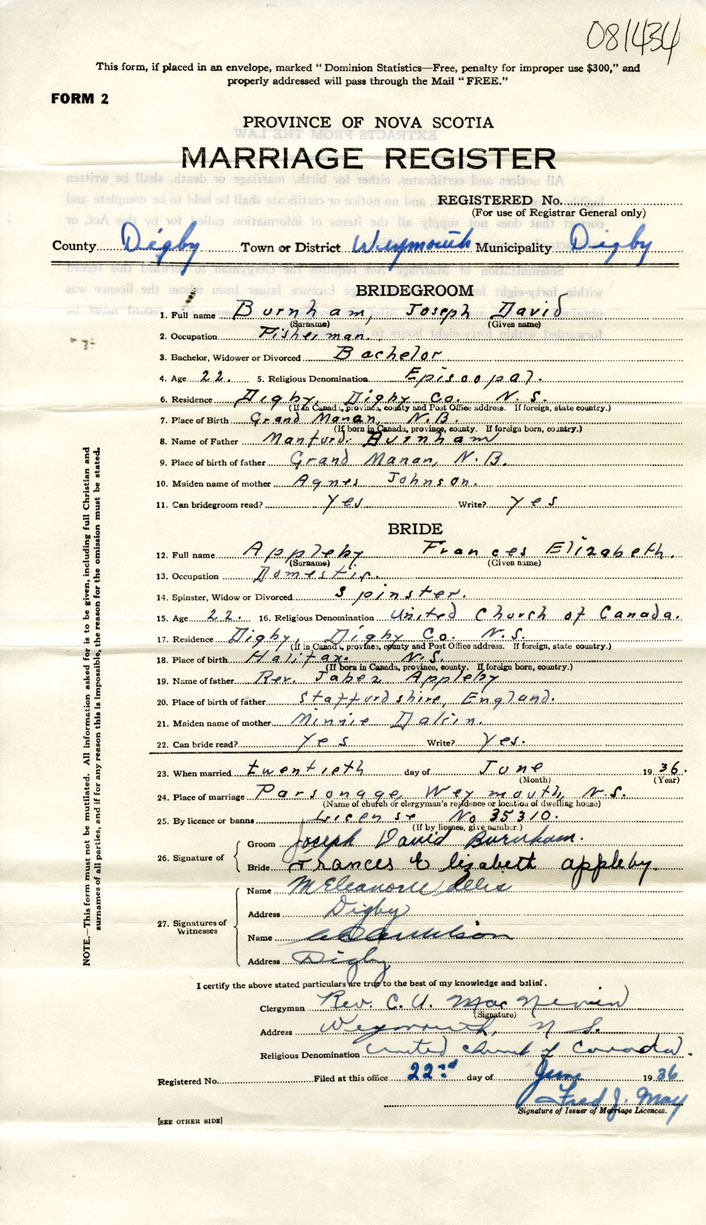 081434
This form, if placed in an envelope, marked "Dominion Statistics—Free, penalty for improper use $300," and
properly addressed will pass through the Mail "FREE."
FORM 2
PROVINCE OF NOVA SCOTIA
MARRIAGE REGISTER
REGISTERED No.
(For use of Registrar General only)
County Digby Town or District Weymouth Municipality Digby
BRIDEGROOM
1. Full name Burnham, Joseph David
(Surname) (Given name)
2. Occupation Fisherman.
3. Bachelor, Widower or Divorced Bachelor
4. Age 22. 5. Religious Denomination Episcopal.
6. Residence Digby, Digby Co. N.S.
(If in Canada, province, county and Post Office address. If foreign, state country.)
7. Place of Birth Grand Manan, N.B.
(If born in Canada, province, county. If foreign born, country.)
8. Name of Father Manford. Burnham
9. Place of birth of father Grand Manan, N.B.
10. Maiden name of mother Agnes Johnson.
11. Can bridegroom read? Yes Write? Yes
BRIDE
12. Full name Appleby Frances Elizabeth.
(Surname) (Given name)
13. Occupation Domestic.
14. Spinster, Widow or Divorced Spinster.
15. Age 22. 16. Religious Denomination United Church of Canada.
17. Residence Digby, Digby Co. N.S.
(If in Canada, province, county and Post Office address. If foreign, state country.)
18. Place of birth Halifax. N.S.
(If born in Canada, province, county. If foreign born, country.)
19. Name of father Rev. Jabez Appleby
20. Place of birth of father Staffordshire, England.
21. Maiden name of mother Minnie
22. Can bride read? Yes Write? Yes.
23. When married twentieth day of June 1936.
(Month) (Year)
24. Place of marriage Parsonage, Weymouth, N.S.
(Name of church or clergyman's residence or location of dwelling house)
25. By licence or banns License No 35310.
(If by licence, give number.)
26. Signature of
Groom Joseph David Burnham.
Bride Frances Elizabeth Appleby.
27. Signatures of Witnesses
Name M Eleanore
Address Digby
Name
Address Digby
I certify the above stated particulars are true to the best of my knowledge and belief.
Clergyman Rev. C. U. MacNevin
(Signature)
Address Weymouth, N S.
Religious Denomination United Church of Canada.
Registered No. Filed at this office 22nd day of June 1936
Fred J. May
Signature of Issuer of Marriage Licences.
[SEE OTHER SIDE]
NOTE.—This form must not be mutilated. All information asked for is to be given, including full Christian and
surnames of all parties, and if for any reason this is impossible, the reason for the omission must be stated.